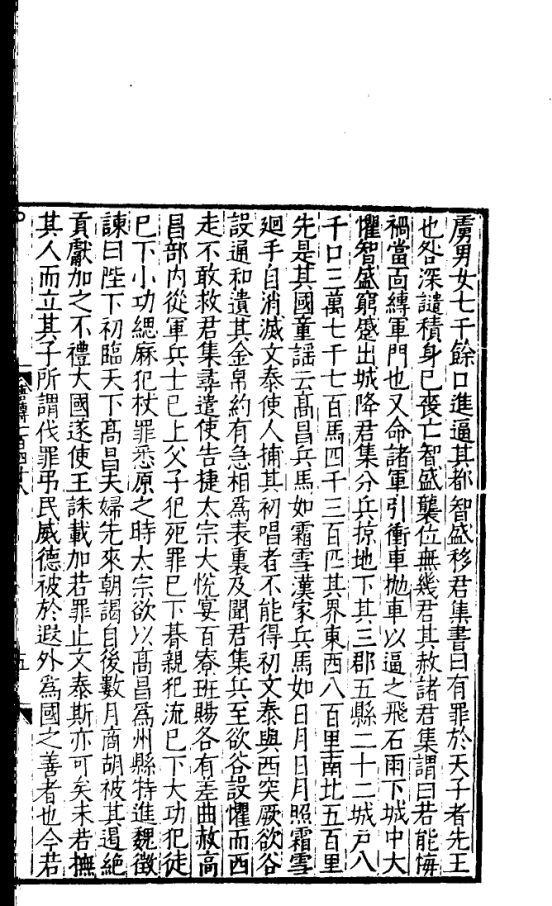 虜男女七千餘口進逼其都智盛移君集書曰有罪於天子者先王
也咎深譴積身已喪亡智盛襲位無幾君其赦諸君集謂曰若能悔
禍當面縛軍門也又命諸軍引衝車拋車以逼之飛石雨下城中大
懼智盛窮蹙出城降君集分兵掠地下其三郡五縣二十二城戶八
千口三萬七千七百馬四千三百匹其界東西八百里南北五百里
先是其國童謠云高昌兵馬如霜雪漢家兵馬如日月日月照霜雪
廻手自消滅文泰使人捕其初唱者不能得初文泰與西突厥欲谷
設通和遺其金帛約有急相為表裏及聞君集兵至欲谷設懼而西
走不敢救君集尋遣使告捷太宗大悅宴百寮班賜各有差曲赦高
昌部內從軍兵士已上父子犯死罪已下朞親犯流已下大功犯徒
已下小功緦麻犯杖罪悉原之時太宗欲以高昌為州縣特進魏徵
諫曰陛下初臨天下高昌夫婦先來朝謁自後數月商胡被其遏絕
貢獻加之不禮大國遂使王誅載加若罪止文泰斯亦可矣未若撫
其人而立其子所謂伐罪弔民威德被於遐外為國之善者也今若
唐傳一百四十八
五